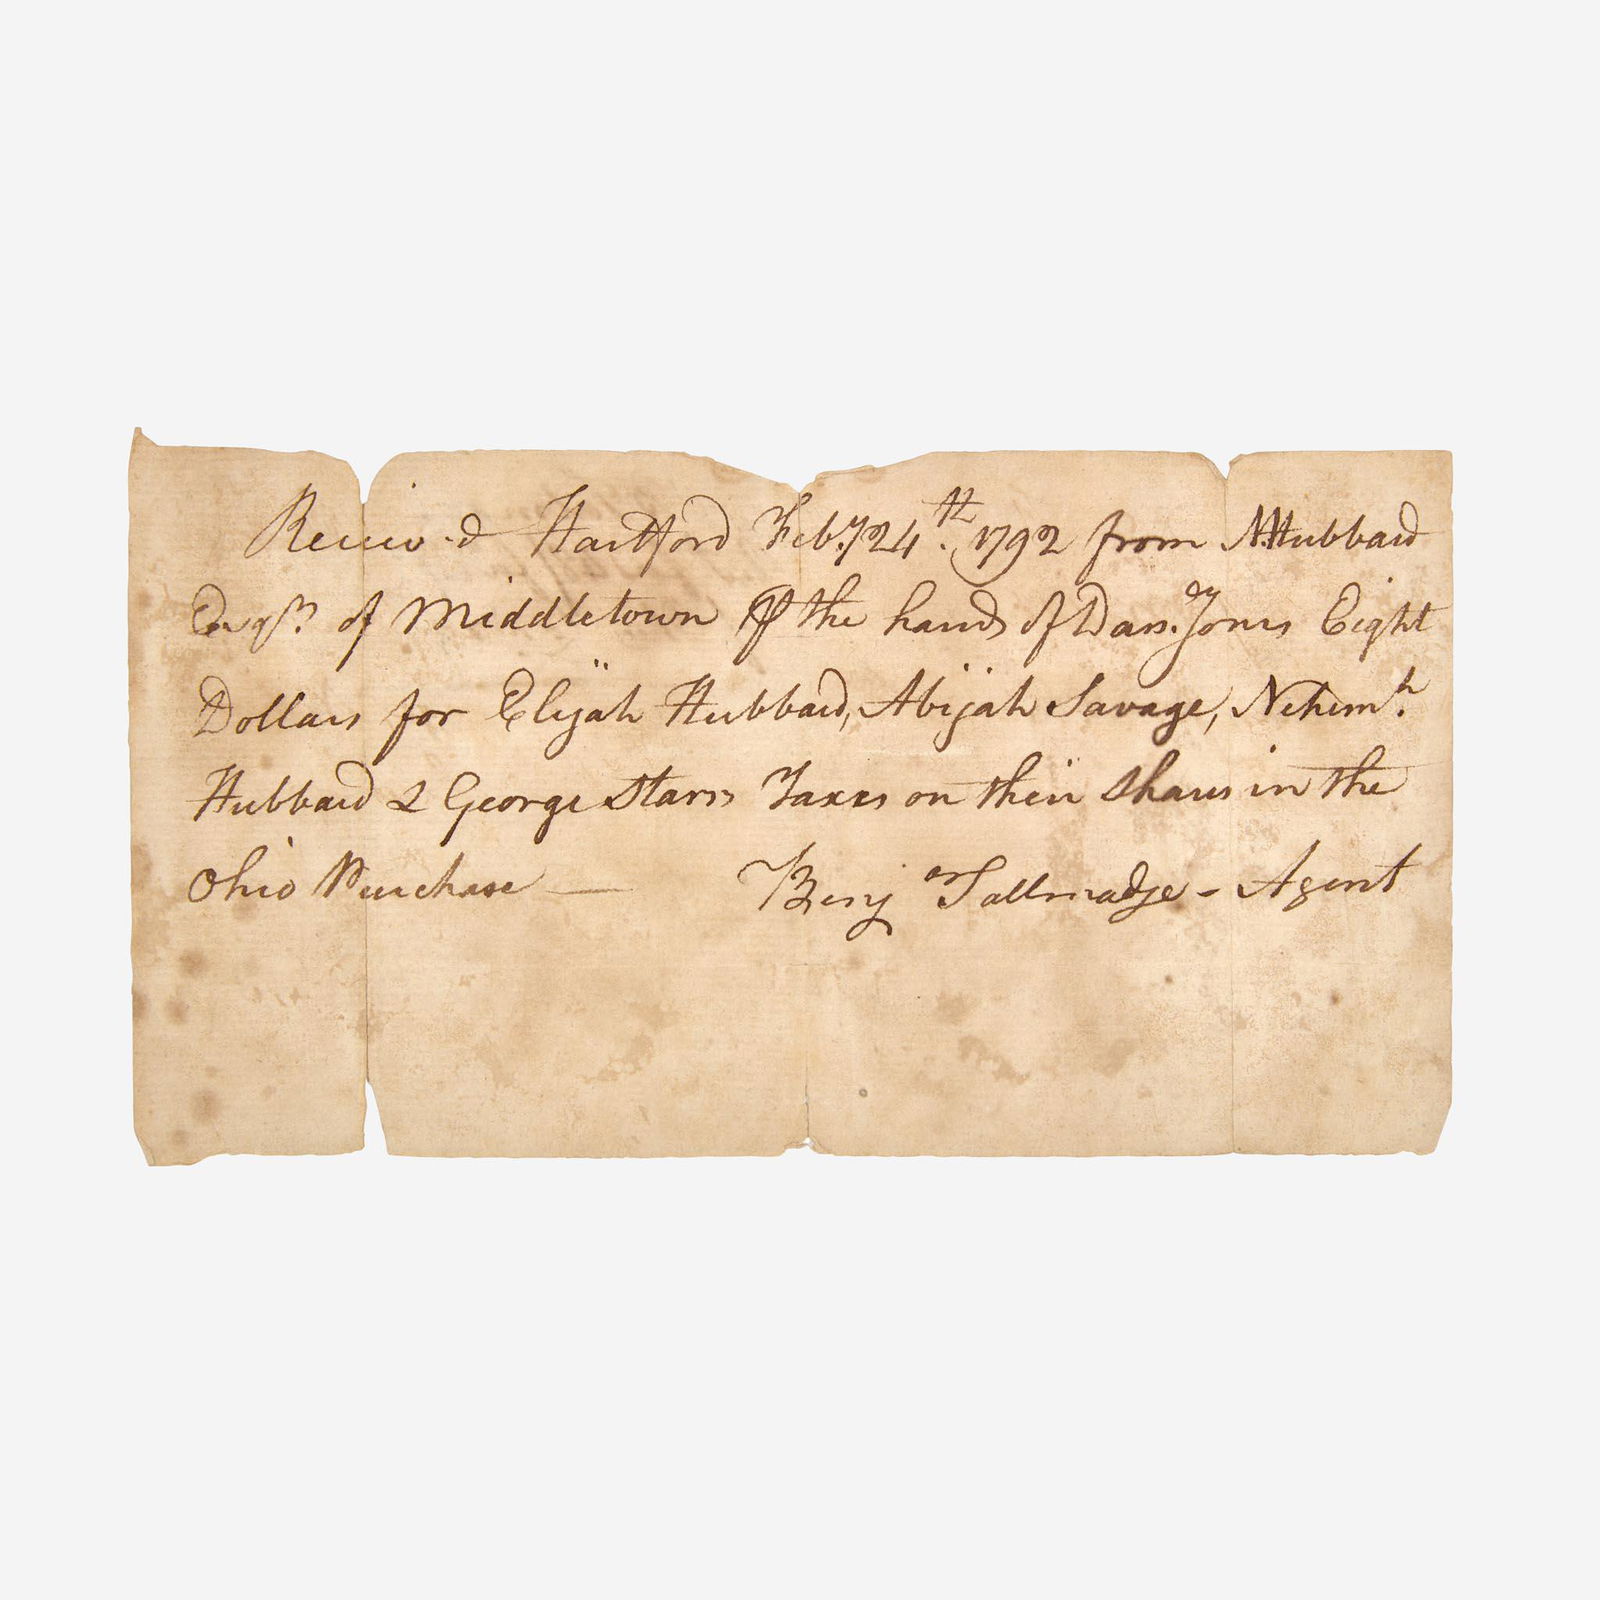 Receiv.d Hartford Feb.y 24.th 1792 from N. Hubbard
Esqr. of Middletown ⅌ the hands of Dan. Jones Eight
Dollars for Elijah Hubbard, Abijah Savage, Nehemh.
Hubbard & George Starrs Taxes on their Shares in the
Ohio Purchase —
Benjan Tallmadge - Agent